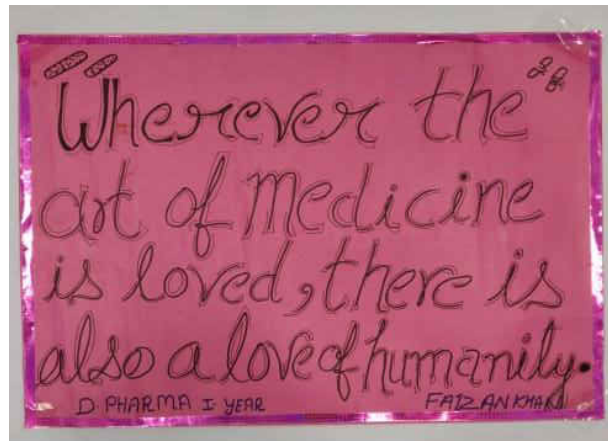 Wherever the
art of medicine
is loved, there is
also a love of humanity.
D. PHARMA I YEAR FAIZAN KHAN